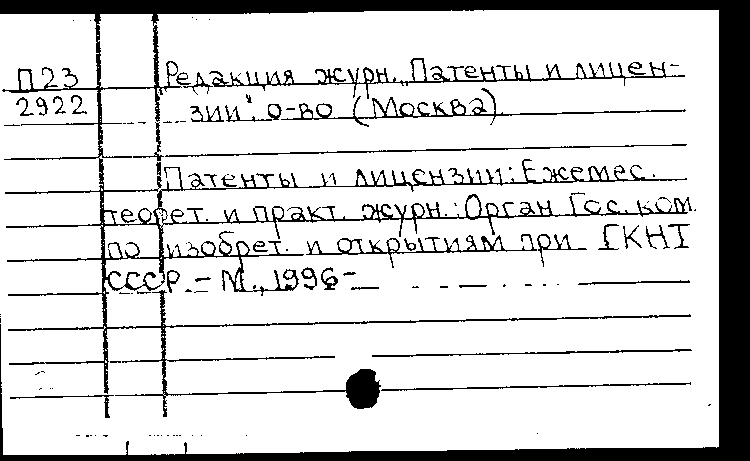 П23
2922
Редакция журн. „Патенты и лицен-
зии", о-во (Москва)
Патенты и лицензии: Ежемес.
теорет. и практ. журн.: Орган Гос. ком.
по изобрет. и открытиям при ГКНТ
СССР. – М., 1996-